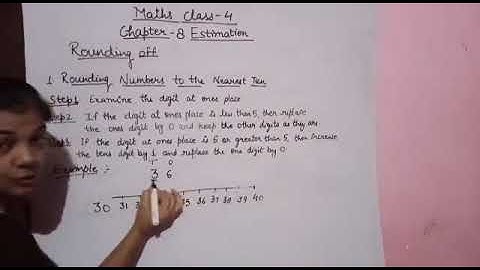 Maths class-4
Chapter-8 Estimation
Rounding off
1. Rounding Numbers to the Nearest Ten
Step1 Examine the digit at ones place
Step2 If the digit at ones place is less than 5, then replace
the ones digit by 0 and keep the other digits as they are
If the digit at ones place is 5 or greater than 5, then increase
the tens digit by 1 and replace the one digit by 0.
Example :-
T O
3 6
30 31 35 36 37 38 39 40